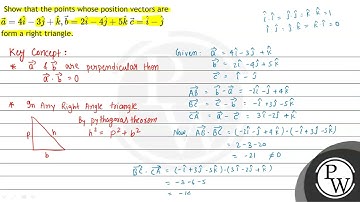 Show that the points whose position vectors are
a⃗ = 4î − 3ĵ + k̂, b⃗ = 2î − 4ĵ + 5k̂ c⃗ = î − ĵ
form a right triangle.
î·î = ĵ·ĵ = k̂·k̂ = 1
î·ĵ = ĵ·k̂ = k̂·î = 0
Key Concept:
* a⃗ & b⃗ are perpendicular then
a⃗·b⃗ = 0
* In Any Right Angle triangle
by pythagoras theorem
h² = p² + b²
p
h
b
Given: a⃗ = 4î − 3ĵ + k̂
b⃗ = 2î − 4ĵ + 5k̂
c⃗ = î − ĵ
AB⃗ = b⃗ − a⃗ = −2î − ĵ + 4k̂
BC⃗ = c⃗ − b⃗ = −î + 3ĵ − 5k̂
CA⃗ = a⃗ − c⃗ = 3î − 2ĵ + k̂
Now, AB⃗·BC⃗ = (−2î − ĵ + 4k̂)·(−î + 3ĵ − 5k̂)
= 2 − 3 − 20
= −21 ≠ 0
BC⃗·CA⃗ = (−î + 3ĵ − 5k̂)·(3î − 2ĵ + k̂)
= −3 − 6 − 5
PW